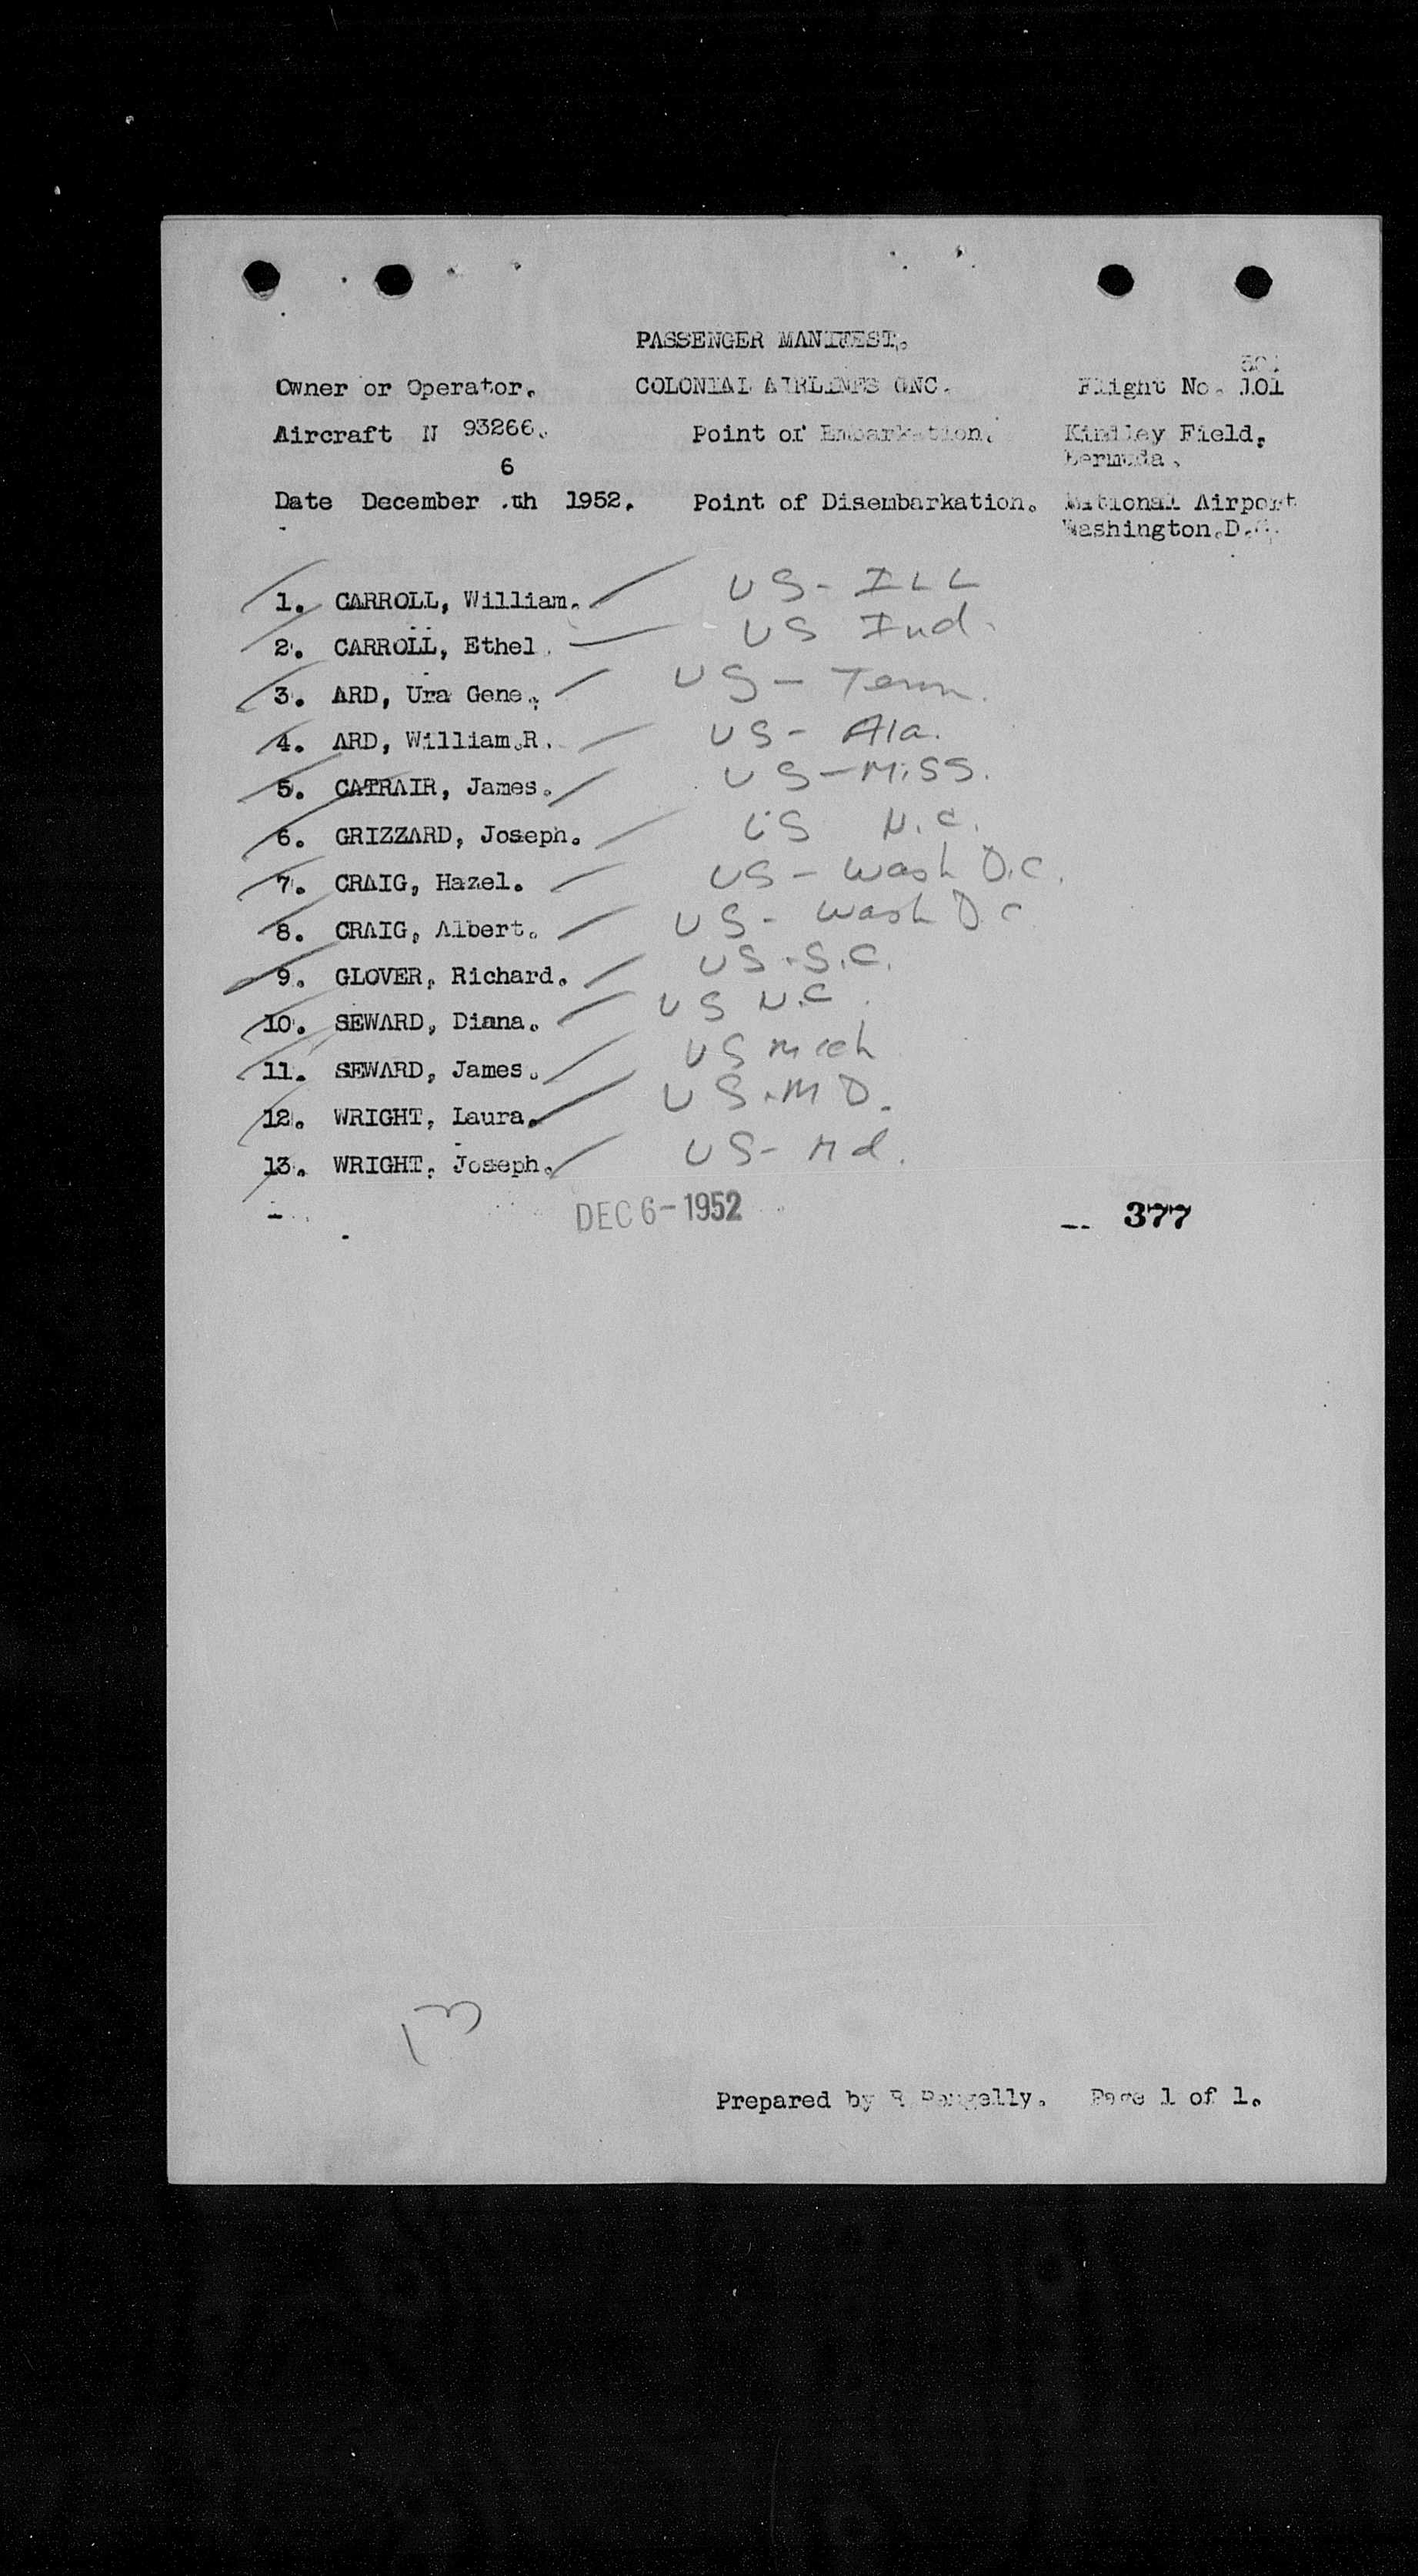 PASSENGER MANIFEST.
501
Owner or Operator. COLONIAL AIRLINES INC. Flight No. 101
Aircraft N 93266. Point of Embarkation. Kindley Field,
Bermuda.
6
Date December .th 1952. Point of Disembarkation. National Airport
Washington.D.C.
1. CARROLL, William. US - ILL
2. CARROLL, Ethel. US Ind.
3. ARD, Ura Gene. US - Tenn.
4. ARD, William.R. US - Ala.
5. CATRAIR, James. US - Miss.
6. GRIZZARD, Joseph. US N.C.
7. CRAIG, Hazel. US - Wash D.C.
8. CRAIG, Albert. US - Wash D.C
9. GLOVER, Richard. US - S.C.
10. SEWARD, Diana. US N.C.
11. SEWARD, James. US Mich
12. WRIGHT, Laura. US - MD.
13. WRIGHT, Joseph. US - Md.
DEC 6 - 1952 -- 377
13
Prepared by R Pengelly. Page 1 of 1.